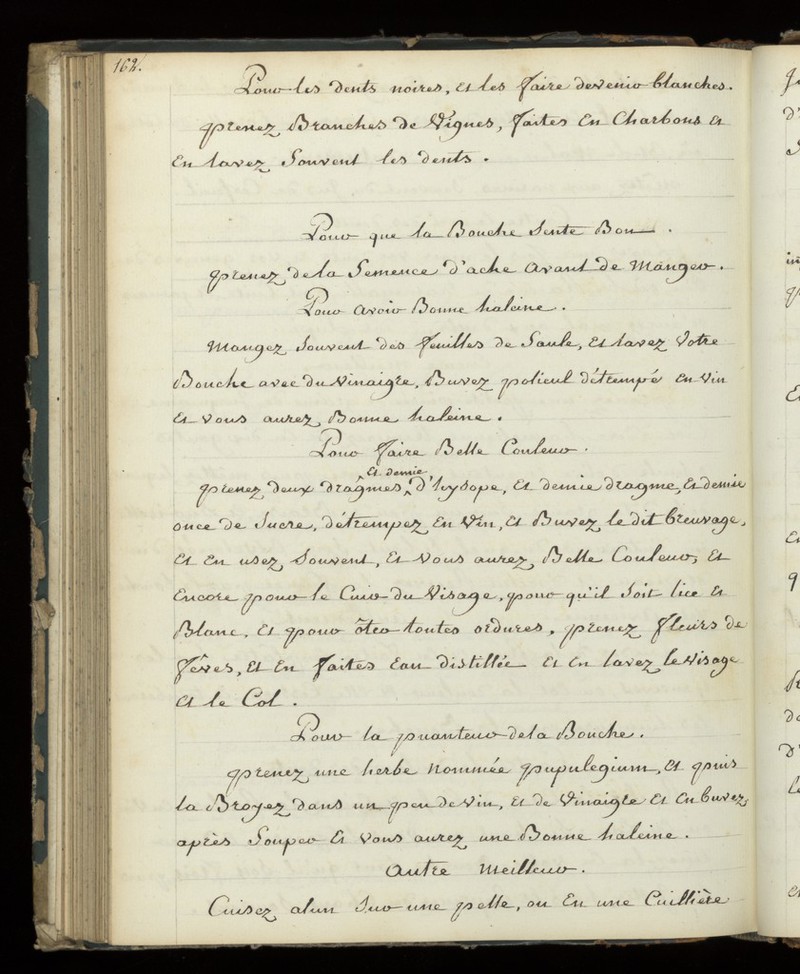 162.
Pour les dents noires, et les faire devenir blanches.
prenez Branches de Vignes, faites En Charbons Et
En lavez Souvent les dents.
Pour que la Bouche Sente Bon.
prenez de la Semence d'ache avant de Manger.
Pour avoir Bonne haleine.
Mangez Souvent des feuilles de Saule, Et lavez Votre
Bouche avec du Vinaigre, Buvez policul détrempé en Vin
Et Vous aurez Bonne haleine.
Pour faire Belle Couleur.
Et demie
prenez deux dragmes, d'hysope, Et demie dragme, Et demie
once de Sucre, détrempez En Vin, Et Buvez le dit breuvage,
Et En usez Souvent, Et Vous aurez Belle Couleur, Et
Encore pour le Cuir du Visage, pour qu'il Soit lice Et
Blanc, Et pour ôter toutes ordures, prenez fleurs de
fêves, Et En faites Eau distillée Et En lavez le Visage
Et le Col.
Pour la puanteur de la Bouche.
prenez une herbe nommée pupulegium, Et puis
la Broyez dans un peu de Vin, Et de Vinaigre Et En buvez,
après Souper Et Vous aurez une Bonne haleine.
Autre Meilleur.
Cuisez alun Sur une pelle, ou En une Cuillière